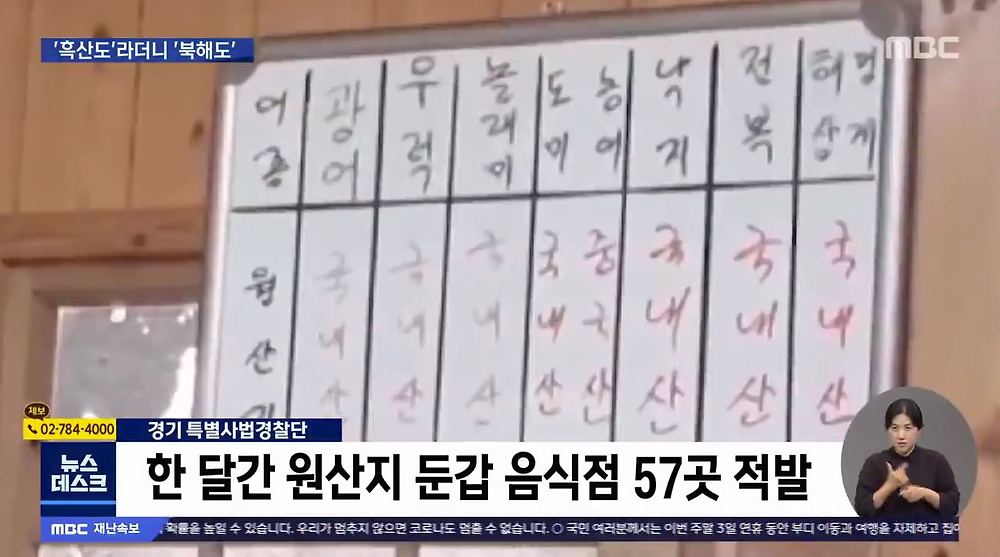 '흑산도'라더니 '북해도'
MBC
어종
광어
우럭
놀래미
도미
농어
낙지
전복
해삼
멍게
원산
국내산
국내산
국내산
국내산
중국산
국내산
국내산
국내산
제보
02-784-4000
경기 특별사법경찰단
뉴스
데스크
한 달간 원산지 둔갑 음식점 57곳 적발
MBC 재난속보 확률을 높일 수 있습니다. 우리가 멈추지 않으면 코로나도 멈출 수 없습니다. ○ 국민 여러분께서는 이번 주말 3일 연휴 동안 부디 이동과 여행을 자제하고